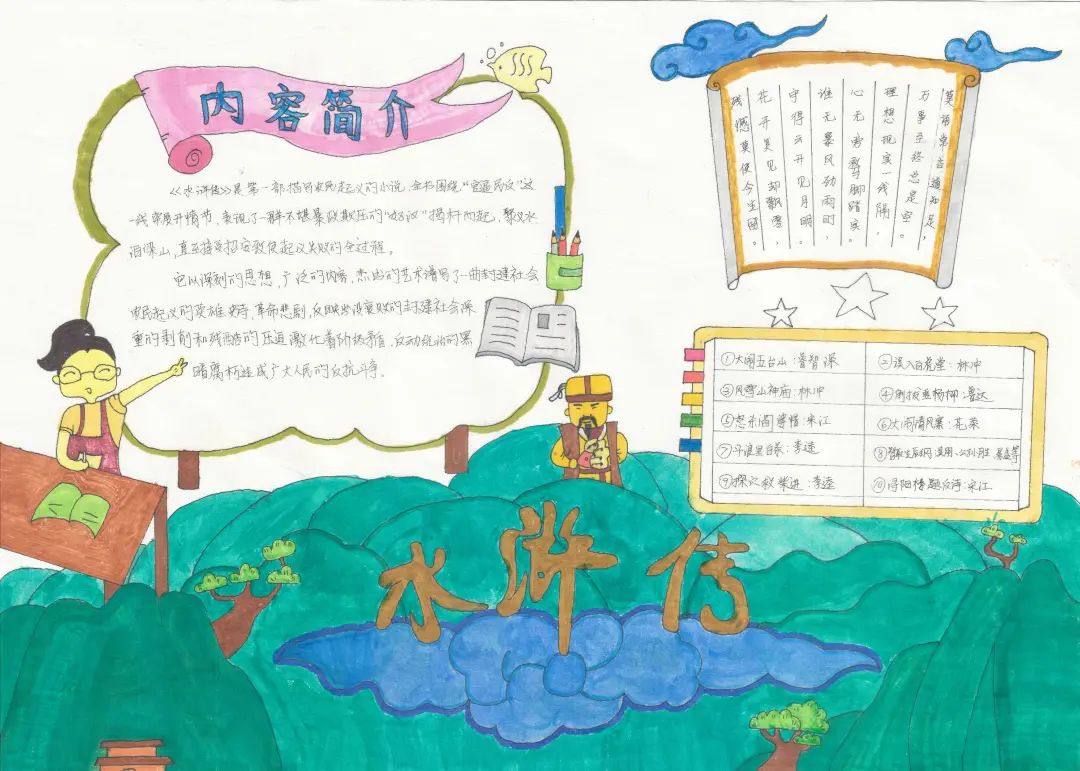 内容简介
《水浒传》是第一部描写农民起义的小说,全书围绕"官逼民反"这
一线索展开情节,表现了一群不堪暴政欺压的"好汉"揭杆而起,聚义水
泊梁山,直至接受招安致使起义失败的全过程。
它以深刻的思想,广泛的内容,杰出的艺术谱写了一曲封建社会
农民起义的英雄史诗,革命悲剧,反映出没衰败的封建社会深
重的剥削和残酷的压迫激化着阶级矛盾,反动统治的黑
暗腐朽造成广大人民的反抗斗争。
莫将常言道知足,
万事至终总是空。
理想现实一线隔,
心无旁骛脚踏实。
谁无暴风劲雨时,
守得云开见月明。
花开复见却飘零,
残憾莫使今生留。
①大闹五台山:鲁智深
②误入白虎堂:林冲
③风雪山神庙:林冲
④倒拔垂杨柳:鲁达
⑤怒杀阎婆惜:宋江
⑥大闹清风寨:花荣
⑦斗浪里白条:李逵
⑧智取生辰纲:吴用、公孙胜、晁盖等
⑨探穴救柴进:李逵
⑩浔阳楼题反诗:宋江
水浒传